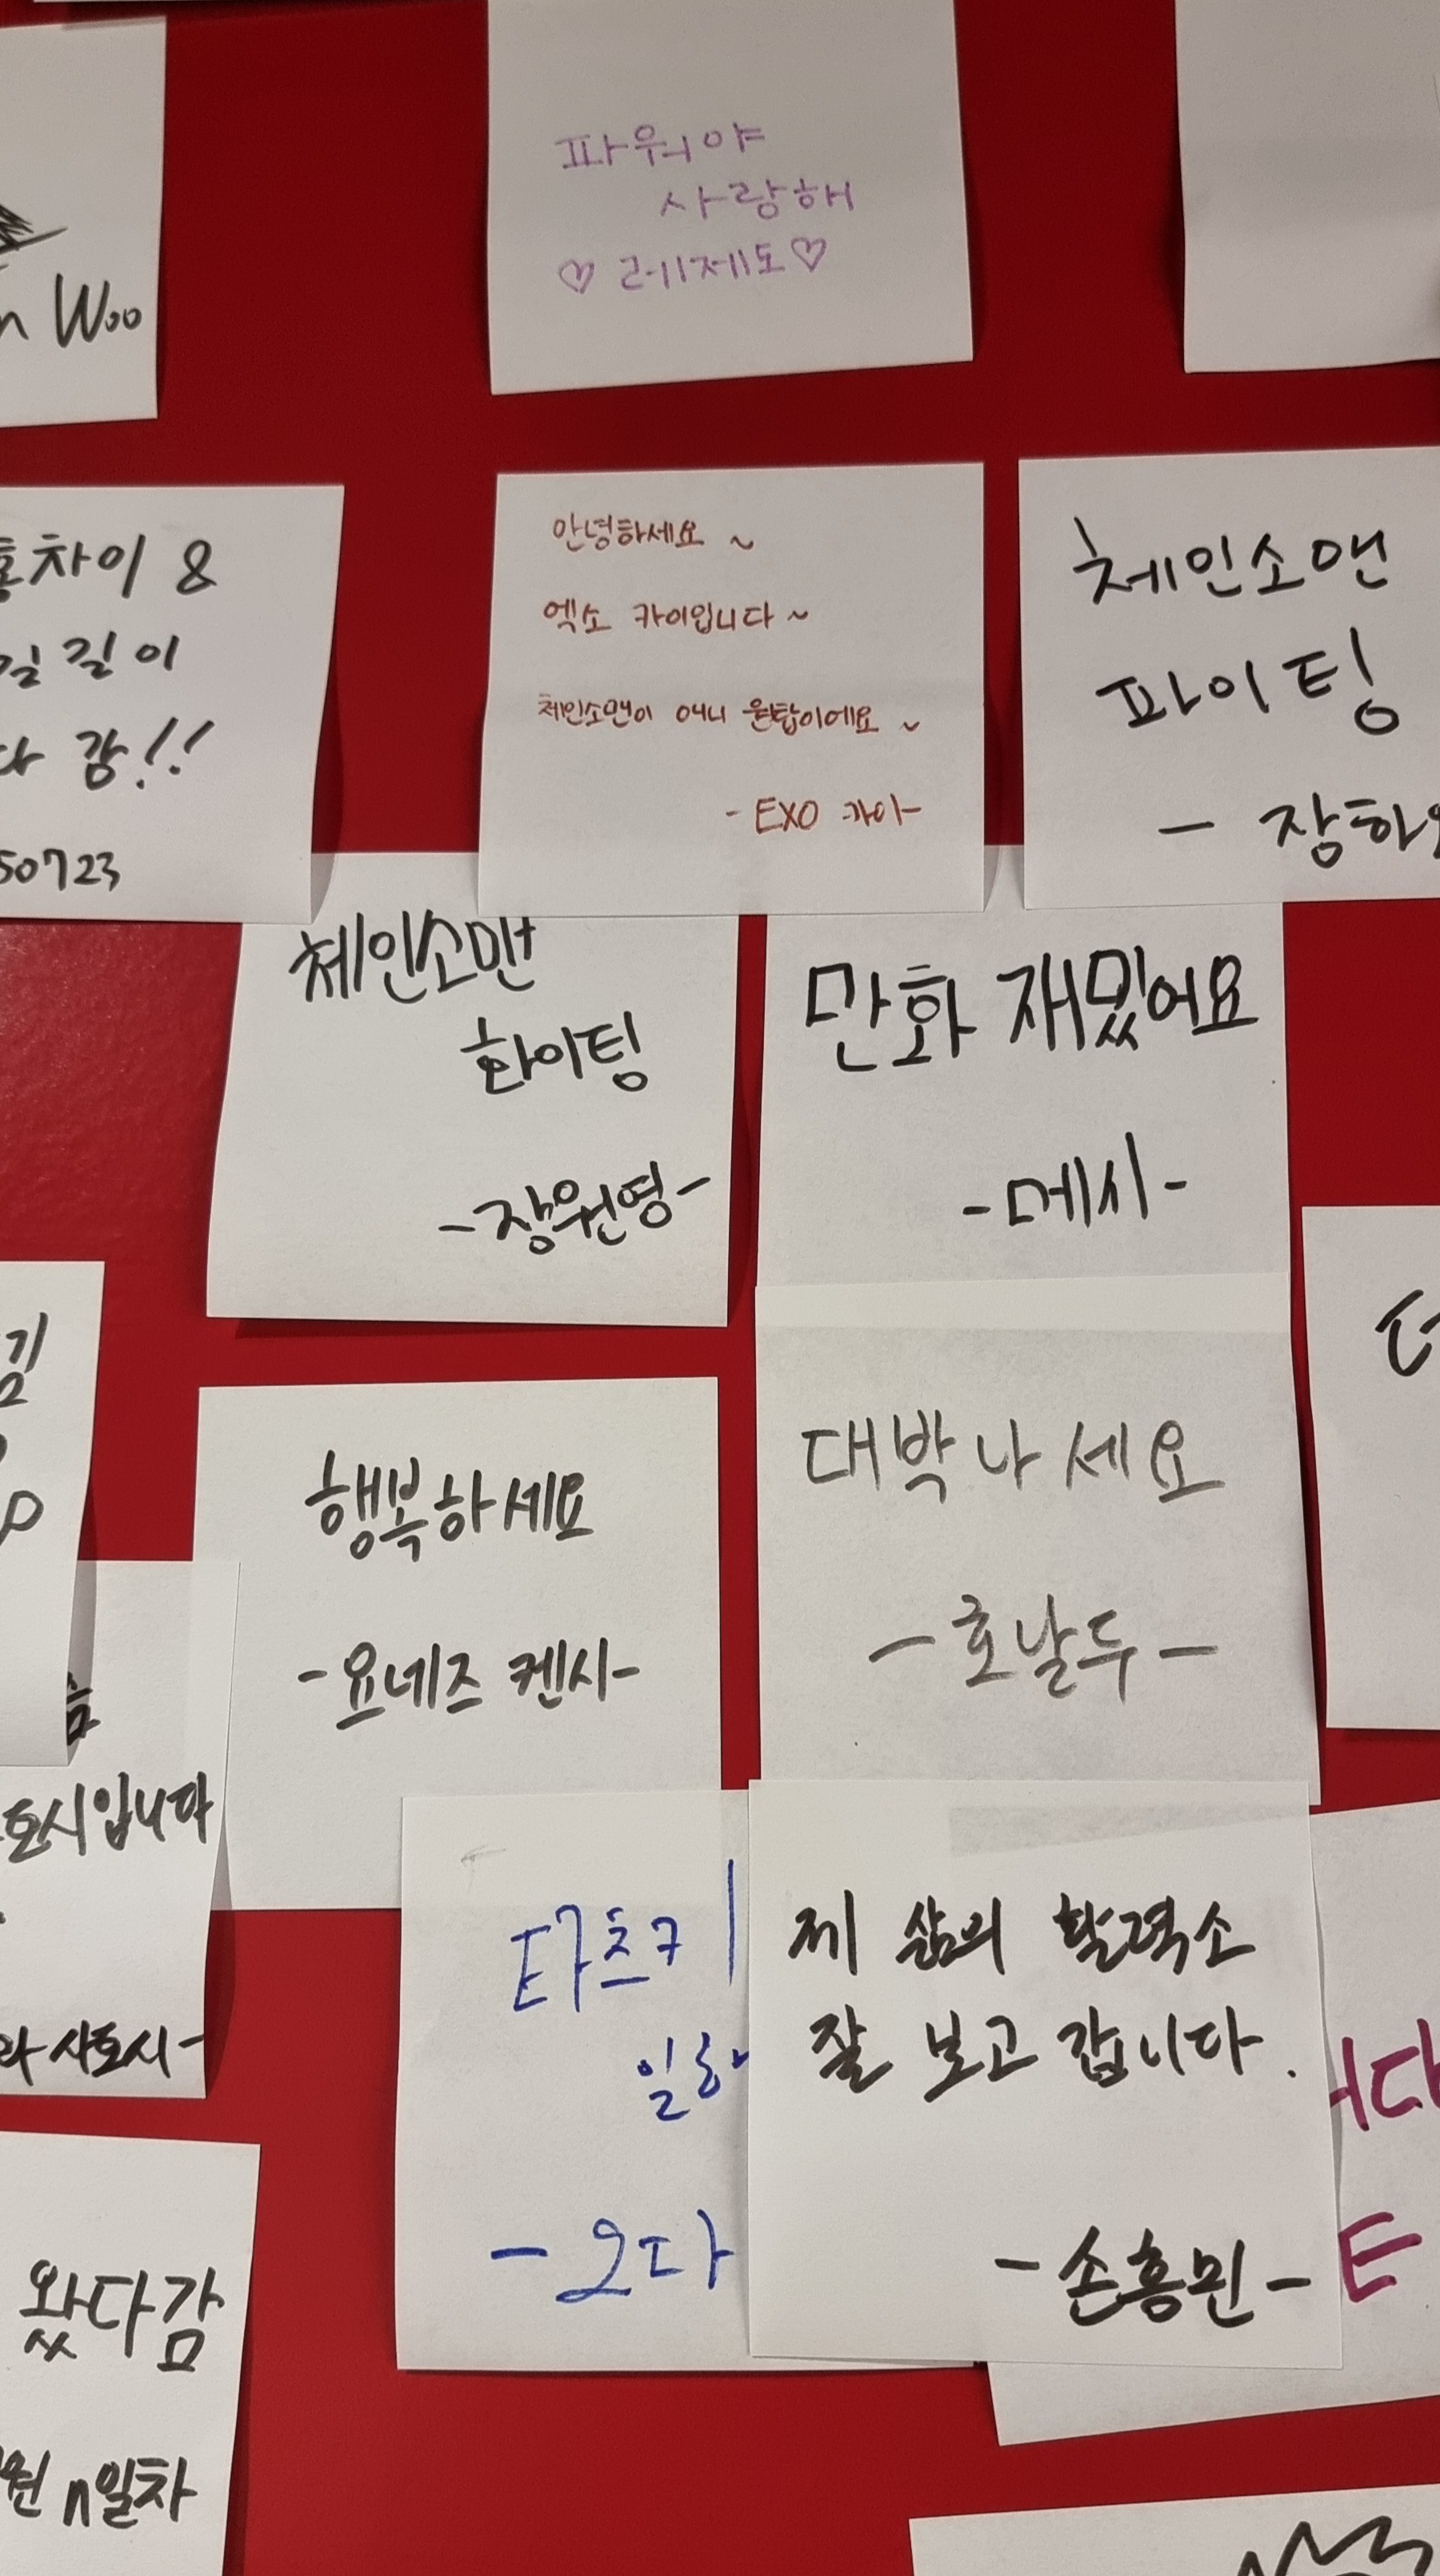 Woo
파워야
사랑해
♡ 레제도 ♡
차이 &
길이
강!!
50723
안녕하세요 ~
엑소 카이입니다 ~
체인소맨이 애니 원탑이에요 ~
- EXO 카이-
체인소맨
파이팅
- 장하
체인소맨
화이팅
-장원영-
만화 재밌어요
-메시-
행복하세요
-요네즈 켄시-
대박나세요
-호날두-
토시입니다
사토시-
타츠키
일
-오다
제 삶의 활력소
잘 보고 갑니다.
-손흥민-
니다
E
왔다감
원 n일차